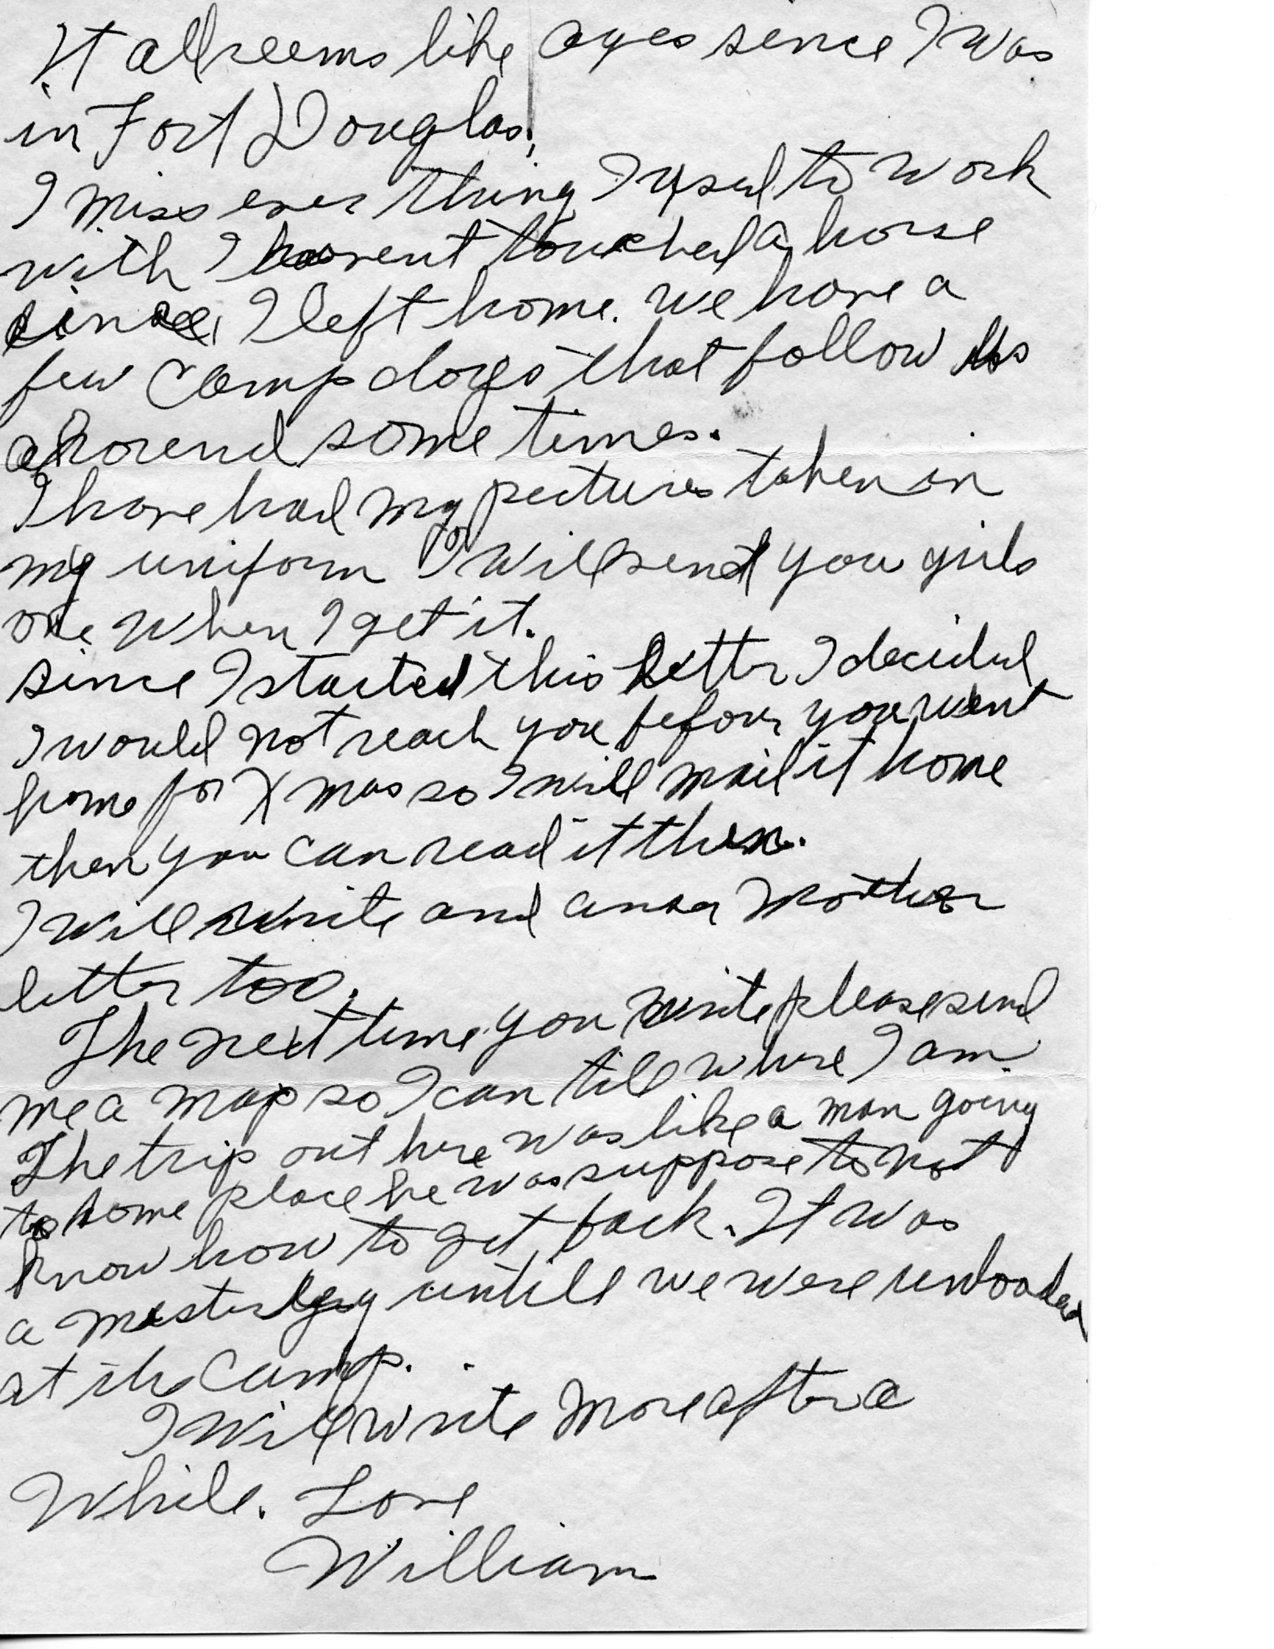 It all seems like ages since I was
in Fort Douglas.
I miss ever thing I used to work
with I havent touched a horse
since I left home. we have a
few camp dogs that follow us
around some times.
I have had my pictures taken in
my uniform I will send you girls
one when I get it.
since I started this letter I decided
I would not reach you before you went
home for Xmas so I will mail it home
then you can read it then.
I will write and anser Mother
letter too.
The next time you write please send
me a map so I can till where I am.
The trip out here was like a man going
to some place he was suppose to not
know how to get back. It was
a untill we were unloaded
at the camp.
I will write more after a
While. Love
William